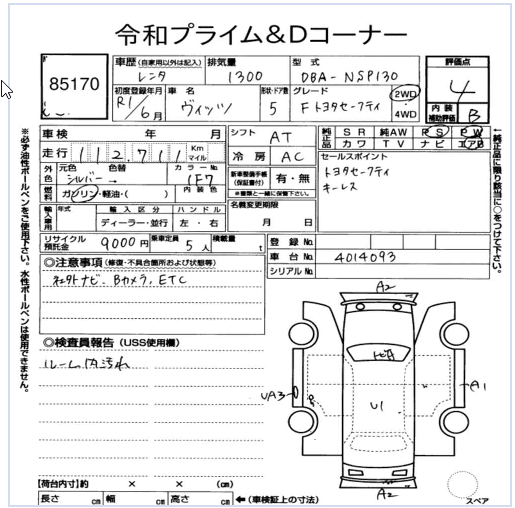 令和プライム&Dコーナー
85170
車歴 (自家用以外は記入) 排気量 型式 評価点
レンタ 1300 DBA-NSP130 4
初度登録年月 車名 形状・ドア数 グレード 2WD 内装補助評価 B
R1/6月 ヴィッツ 5 Fトヨタセーフティ 4WD
車検 年 月 シフト AT 純正品 SR 純AW PS PW
カワ TV ナビ エアB
走行 112,711 Km マイル 冷房 AC セールスポイント
外色 元色 色替 カラーNo トヨタセーフティ
シルバー → 1F7 キーレス
新車整備手帳(保証書付) 有・無
※書類と一緒に保管下さい。
燃料 ガソリン・軽油・( ) 内装色
名義変更期限
月 日
輸入車用 年式 輸入区分 ハンドル
ディーラー・並行 左・右
リサイクル預託金 9000円 乗車定員 5人 積載量 t
登録No.
車台No. 4014093
シリアルNo.
◎注意事項 (修復・不具合箇所および状態等)
社外ナビ、Bカメラ、ETC
◎検査員報告 (USS使用欄)
ルーム内汚れ
A2
UA3
A1
U1
A2
スペア
【荷台内寸】約 × × (cm)
長さ cm 幅 cm 高さ cm ←(車検証上の寸法)
※必ず油性ボールペンをご使用下さい。水性ボールペンは使用できません。
←純正品に限り該当に○をつけて下さい。